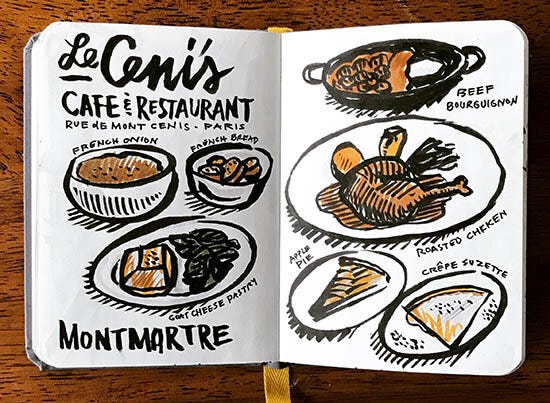 Le Cenis
CAFE & RESTAURANT
RUE de MONT CENIS - PARIS
FRENCH ONION
FRENCH BREAD
GOAT CHEESE PASTRY
MONTMARTRE
BEEF
BOURGUIGNON
ROASTED CHICKEN
APPLE
PIE
CRÊPE SUZETTE